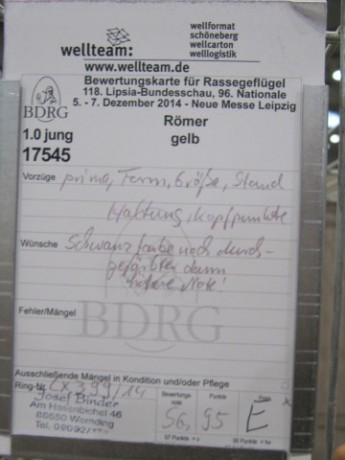 wellteam:
wellformat
schöneberg
wellcarton
welllogistik
www.wellteam.de
Bewertungskarte für Rassegeflügel
118. Lipsia-Bundesschau, 96. Nationale
5. - 7. Dezember 2014 - Neue Messe Leipzig
BDRG
Römer
1.0 jung
gelb
17545
Vorzüge prima, Form, Größe, Stand
Haltung, Kopfpunkte
Wünsche Schwanzfarbe noch durch-
gefärbter dann
höhere Note!
Fehler/Mängel
BDRG
Ausschließende Mängel in Kondition und/oder Pflege
Ring-Nr. CX 399/14
Josef Binder
Am Hasenbichel 46
86650 Wemding
Tel. 09092/
Bewertungs-
note
Punkte
Preis
SG, 95 E
97 Punkte = v